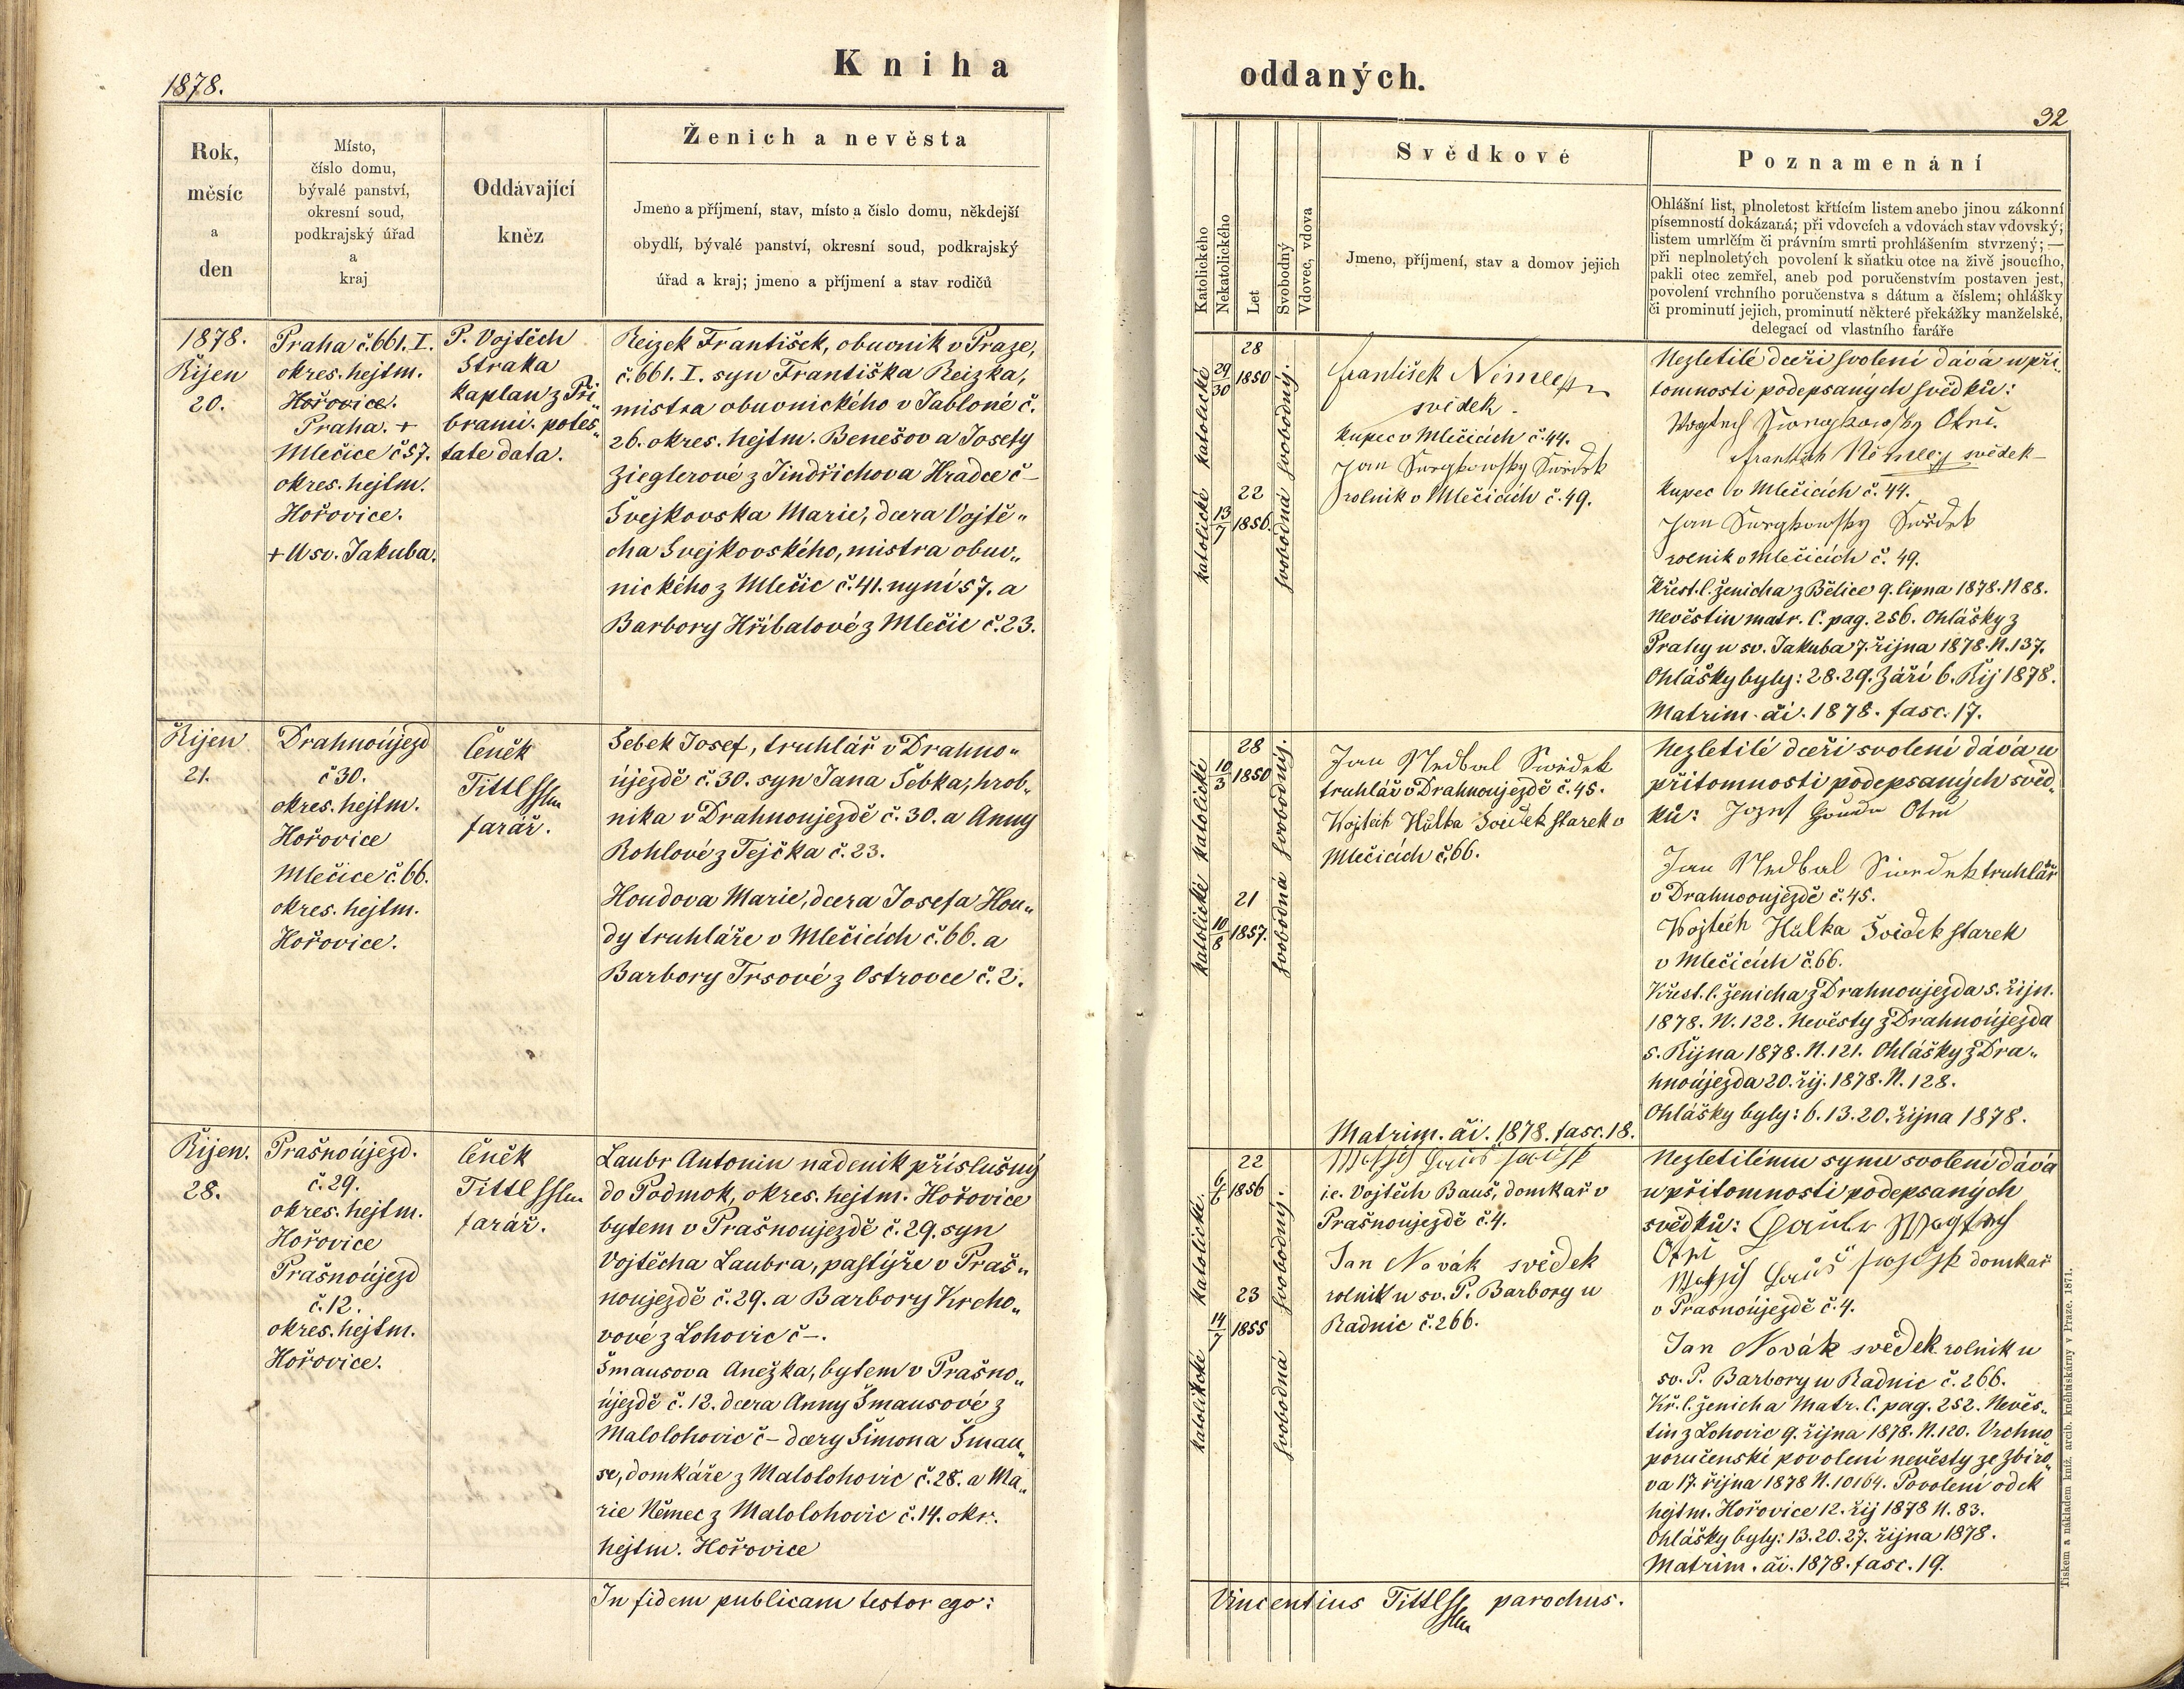 1878.
Kniha
Rok,
měsíc
a
den
Místo,
číslo domu,
bývalé panství,
okresní soud,
podkrajský úřad
a
kraj
Oddávající
kněz
Ženich a nevěsta
Jmeno a příjmení, stav, místo a číslo domu, někdejší
obydlí, bývalé panství, okresní soud, podkrajský
úřad a kraj; jmeno a příjmení a stav rodičů
1878.
Říjen
20.
Praha č. 661. I.
okres. hejtm.
Hořovice.
Praha. +
Mlečice č 57.
okres. hejtm.
Hořovice.
+ U sv. Jakuba.
P. Vojtěch
Straka
kaplan z Při„
brami. potes„
tate data.
Reizek František, obuvník v Praze,
č. 661. I. syn Františka Reizka,
mistra obuvnického v Jabloné č.
26. okres. hejtm. Benešov a Josefy
Zieglerové z Jindřichova Hradce č –
Švejkovska Marie, dcera Vojtě„
cha Švejkovského, mistra obuv„
nického z Mlečic č. 41. nyní 57. a
Barbory Hříbalové z Mlečic č. 23.
Říjen
21.
Drahnoújezd
č 30.
okres. hejtm.
Hořovice
Mlečice č. 66.
okres. hejtm.
Hořovice.
Čeněk
Tittl
farář.
Šebek Josef, truhlář v Drahno„
újezdě č. 30. syn Jana Šebka, hrob„
nika v Drahnoujezdě č. 30. a Anny
Rohlové z Tejčka č. 23.
Houdova Marie, dcera Josefa Hou„
dy truhláře v Mlečicích č. 66. a
Barbory Trsové z Ostrovce č. 2.
Říjen.
28.
Prašnoújezd.
č. 29.
okres. hejtm.
Hořovice
Prašnoújezd
č. 12.
okres. hejtm.
Hořovice.
Čeněk
Tittl
farář.
Laubr Antonin nadenik příslušný
do Podmok, okres. hejtm. Hořovice
bytem v Prašnoujezdě č. 29. syn
Vojtěcha Laubra, pastýře v Praš„
noujezdě č. 29. a Barbory Krcho„
vové z Lohovic č –.
Šmausova Anežka, bytem v Prašno„
újezdě č. 12. dcera Anny Šmausové z
Malolohovic č – dcery Šimona Šmau„
se, domkáře z Malolohovic č. 28. a Ma„
rie Němec z Malolohovic č. 14. okr.
hejtm. Hořovice
In fidem publicam testor ego:
oddaných.
92
Katolického
Nekatolického
Let
Svobodný
Vdovec, vdova
Svědkové
Jmeno, příjmení, stav a domov jejich
Poznamenání
Ohlášní list, plnoletost křtícím listem anebo jinou zákonní
písemností dokázaná; při vdovcích a vdovách stav vdovský;
listem umrlčím či právním smrti prohlášením stvrzený; —
při neplnoletých povolení k sňatku otce na živě jsoucího,
pakli otec zemřel, aneb pod poručenstvím postaven jest,
povolení vrchního poručenstva s dátum a číslem; ohlášky
či prominutí jejich, prominutí některé překážky manželské,
delegací od vlastního faráře
katolické
29/30
28
1850
svobodný.
katolické
13/7
22
1856.
svobodná
František Němec
svědek.
kupec v Mlečicích č. 44.
Jan Swegkowsky Swědek
rolník v Mlečicích č. 49.
Nezletilé dceři svolení dává u při„
tomnosti podepsaných svědků:
Wogtech Swegkowsky Otec.
František Němec svědek
kupec v Mlečicích č. 44.
Jan Swegkowsky Swědek
rolník v Mlečicích č. 49.
Křest. l. ženicha z Bělice 9. lipna 1878. N 88.
Nevěstin matr. C. pag. 256. Ohlášky z
Prahy u sv. Jakuba 7. října 1878. N. 137.
Ohlášky byly: 28. 29. Září 6. Říj 1878.
Matrim. ai. 1878. fasc. 17.
katolické
10/3
28
1850
svobodný.
katolické
10/8
21
1857.
svobodná
Jan Nedbal Swědek
truhlář v Drahnoujezdě č. 45.
Wojtěch Hůlka Svědek starek v
Mlečicích č. 66.
Matrim. ai. 1878. fasc. 18.
Nezletilé dceři svolení dává u
přítomnosti podepsaných svěd„
ků: Jozef Houda Otec
Jan Nedbal Swědek truhlář
v Drahnooujezdě č. 45.
Wojtěch Hůlka Svědek starek
v Mlečicích č. 66.
Křest. l. ženicha z Drahnoujezda 5. říjn.
1878. N. 122. Nevěsty z Drahnoújezda
5. Října 1878. N. 121. Ohlášky z Dra„
hnoújezda 20. říj. 1878. N. 128.
Ohlášky byly: 6. 13. 20. října 1878.
katolické.
22
1856
svobodný.
katolikcké
14/7
23
1855
svobodná
i.e. Vojtěch Bauš, domkař v
Prašnoujezdě č. 4.
Jan Novák svědek
rolnik u sv. P. Barbory u
Radnic č. 266.
Nezletilému synu svolení dává
u přitomnosti podepsaných
svědků: Laubr Wogtěch
Otec
domkař
v Prasnoújezdě č. 4.
Jan Novák svědek rolnik u
sv. P. Barbory u Radnic č. 266.
Kř. l. ženicha Matr. C. pag. 252. Nevěs„
tin z Lohovic 9. října 1878. N. 120. Vrchno
poručenské povolení nevěsty ze Zbiro„
va 17. října 1878 N. 10164. Povolení od ck
hejtm. Hořovice 12. říj 1878 N. 83.
Ohlášky byly: 13. 20. 27. října 1878.
Matrim. ai. 1878. fasc. 19.
Vincentius Tittl parochus.
Tiskem a nákladem kníž. arcib. kněhtiskárny v Praze. 1871.